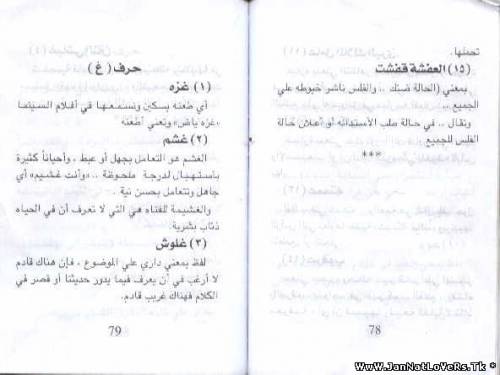 تحملها.
(١٥) العفشة قفشت
بمعني (الحالة ضنك .. والفلس ناشر خيوطه علي
الجميع ..
وتقال .. في حالة طلب الأستدانه أو أعلان حالة
الفلس للجميع
***
78
حرف (غ)
(١) غزه
أي طعنه بسكين ونسمعها في أفلام السينما
«غزه ياض» وتعني أطعنه
(٢) غشم
الغشم هو التعامل بجهل أو عبط ، وأحياناً كثيرة
باستهبال لدرجة ملحوظة .. «وأنت غشيم» أي
جاهل وتتعامل بحسن نية .
والغشيمة للفتاه هي التي لا تعرف أن في الحياه
ذئاب بشرية.
(٣) غلوش
لفظ بمعني داري علي الموضوع ، فإن هناك قادم
لا أرغب في أن يعرف فيما يدور حديثنا أو قصر في
الكلام فهناك غريب قادم.
79
WwW.JanNatLoVeRs.Tk *